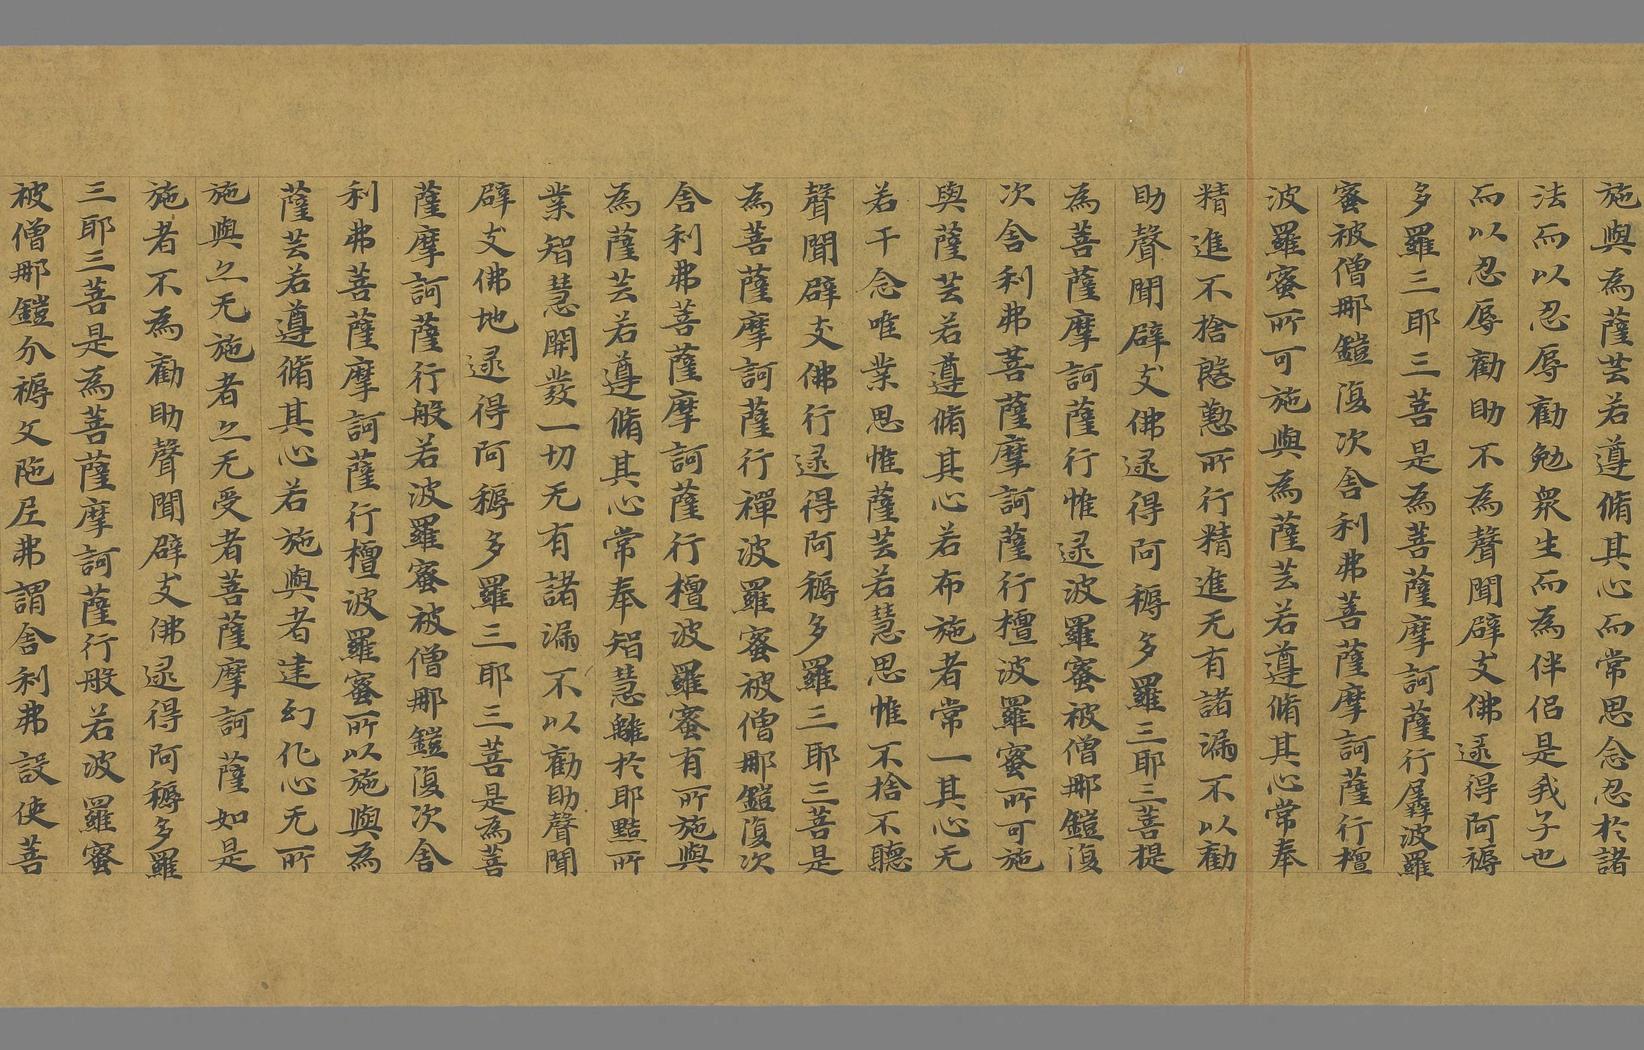 施與為薩芸若遵脩其心而常思念忍於諸
法而以忍辱勸勉衆生而為伴侣是我子也
而以忍辱勸助不為聲聞辟支佛逯得阿耨
多羅三耶三菩是為菩薩摩訶薩行羼波羅
蜜被僧那鎧復次舍利弗菩薩摩訶薩行檀
波羅蜜所可施與為薩芸若遵脩其心常奉
精進不捨慇懃所行精進无有諸漏不以勸
助聲聞辟支佛逯得阿耨多羅三耶三菩提
為菩薩摩訶薩行惟逯波羅蜜被僧那鎧復
次舍利弗菩薩摩訶薩行檀波羅蜜所可施
與薩芸若遵脩其心若布施者常一其心无
若干念唯業思惟薩芸若慧思惟不捨不聽
聲聞辟支佛行逯得阿耨多羅三耶三菩是
為菩薩摩訶薩行禪波羅蜜被僧那鎧復次
舍利弗菩薩摩訶薩行檀波羅蜜有所施與
為薩芸若遵脩其心常奉智慧離於耶黠所
業智慧開發一切无有諸漏不以勸助聲聞
辟支佛地逯得阿耨多羅三耶三菩是為菩
薩摩訶薩行般若波羅蜜被僧那鎧復次舍
利弗菩薩摩訶薩行檀波羅蜜所以施與為
薩芸若遵脩其心若施與者建幻化心无所
施與亦无施者亦无受者菩薩摩訶薩如是
施者不為勸助聲聞辟支佛逯得阿耨多羅
三耶三菩是為菩薩摩訶薩行般若波羅蜜
被僧那鎧分耨文陁尼弗謂舍利弗設使菩